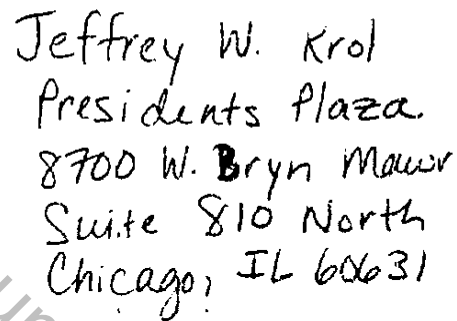 Jeffrey W. Krol
Presidents Plaza.
8700 W. Bryn Mawr
Suite 810 North
Chicago, IL 60631